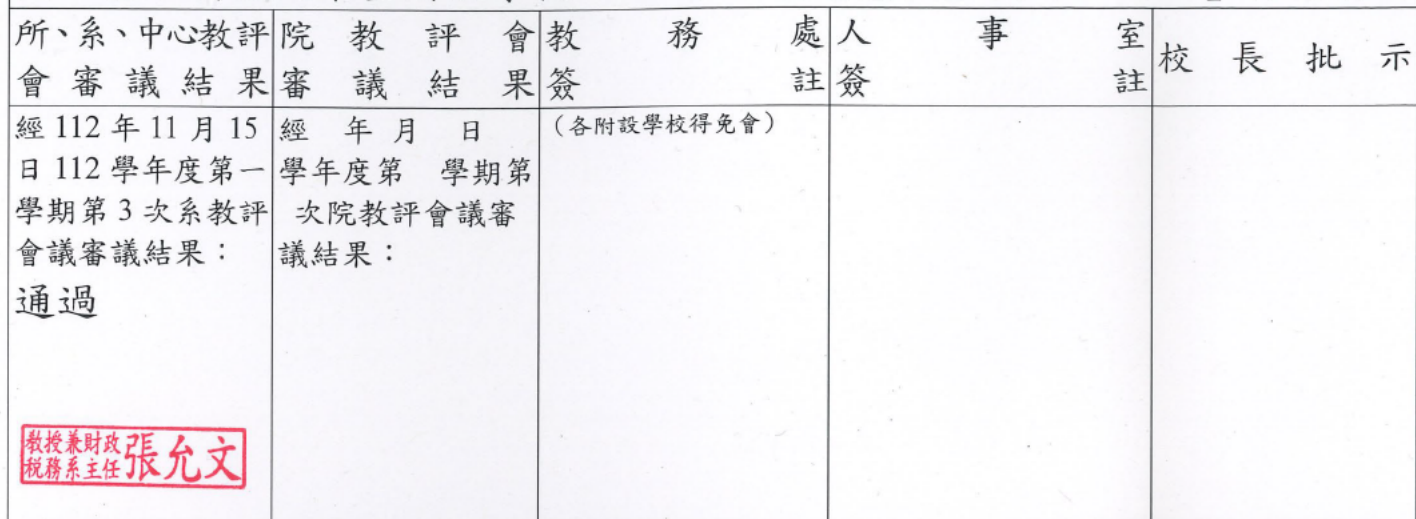 所、系、中心教評
會審議結果
院教評會
審議結果
教務處
簽註
人事室
簽註
校長批示
經 112 年 11 月 15
日 112 學年度第一
學期第 3 次系教評
會議審議結果：
通過
教授兼財政
稅務系主任
張允文
經 年 月 日
學年度第 學期第
次院教評會議審
議結果：
（各附設學校得免會）